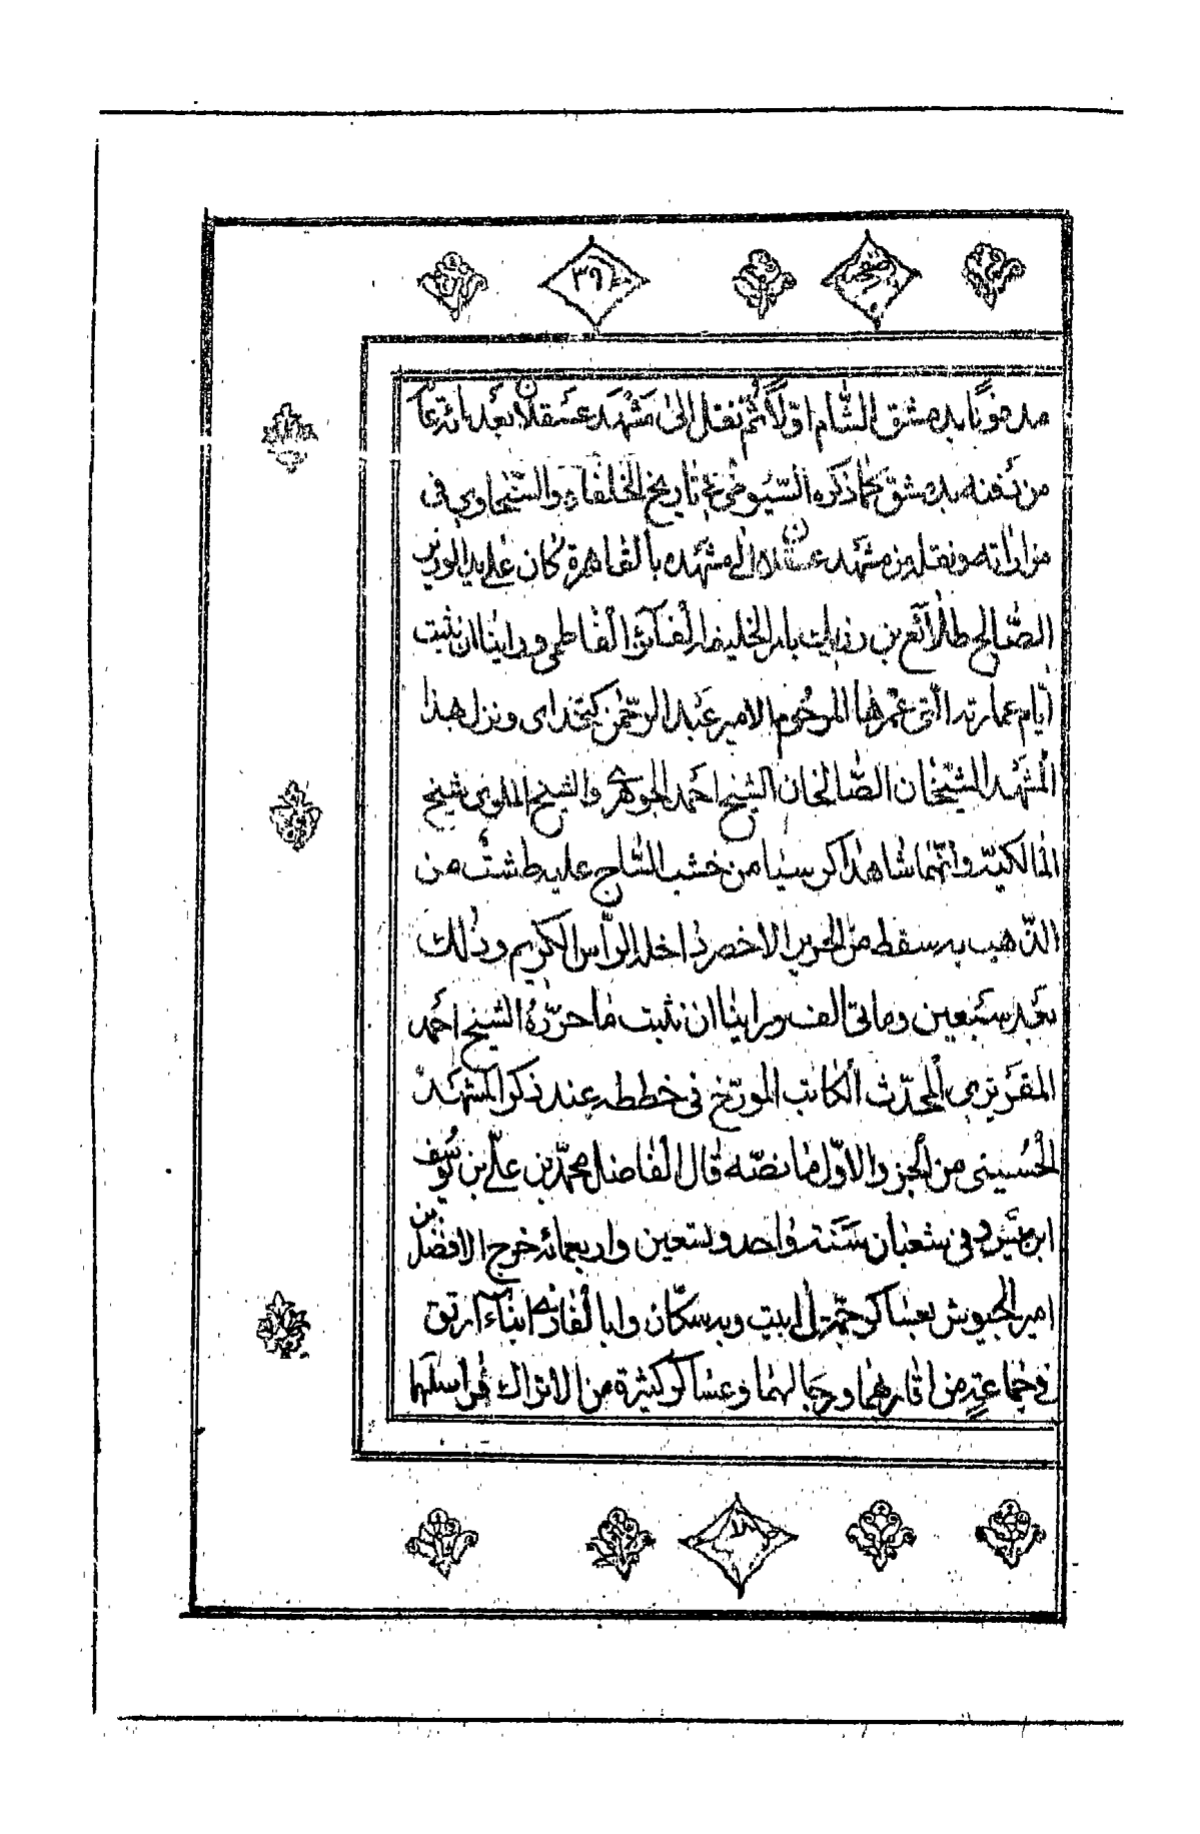 صفحه ٣٩
مدفونا بدمشق الشام اولا ثم نقل الى مشهد عسقلان بعد مائة عام
من دفنه بدمشق كما ذكره السيوطي في تاريخ الخلفاء والسخاوي في
مزاراته ونقله من مشهد عسقلان الى مشهده بالقاهرة كان على يد الوزير
الصالح طلائع بن رزيك بامر الخليفة الفائز الفاطمي وراينا ان نثبت
ايام عمارته التى عمرها المرحوم الامير عبد الرحمن كتخداى ونزل هذا
المشهد الشيخان الصالحان الشيخ احمد الجوهري والشيخ الملوي شيخ
المالكية وانهما شاهدا كرسيا من خشب الساج عليه طشت من
الذهب به سقط من الحرير الاخضر داخله الرأس الكريم وذلك
بعد سبعين وماتى الف وراينا ان نثبت ما حرره الشيخ احمد
المقريزي المحدث الكاتب المورخ فى خططه عند ذكر المشهد
الحسينى من الجزء الاول ما نصه قال الفاضل محمد بن علي بن يوسف
ابن ميسر وفى شعبان سنة واحد وتسعين واربعمائة خرج الافضل بن
امير الجيوش بعساكر جمة الى بيت وبه سكان وابا لغازي ابناء ارتق
فى جماعة من اقاربهما ورجالهما وعساكر كثيرة من الاتراك فراسلهما